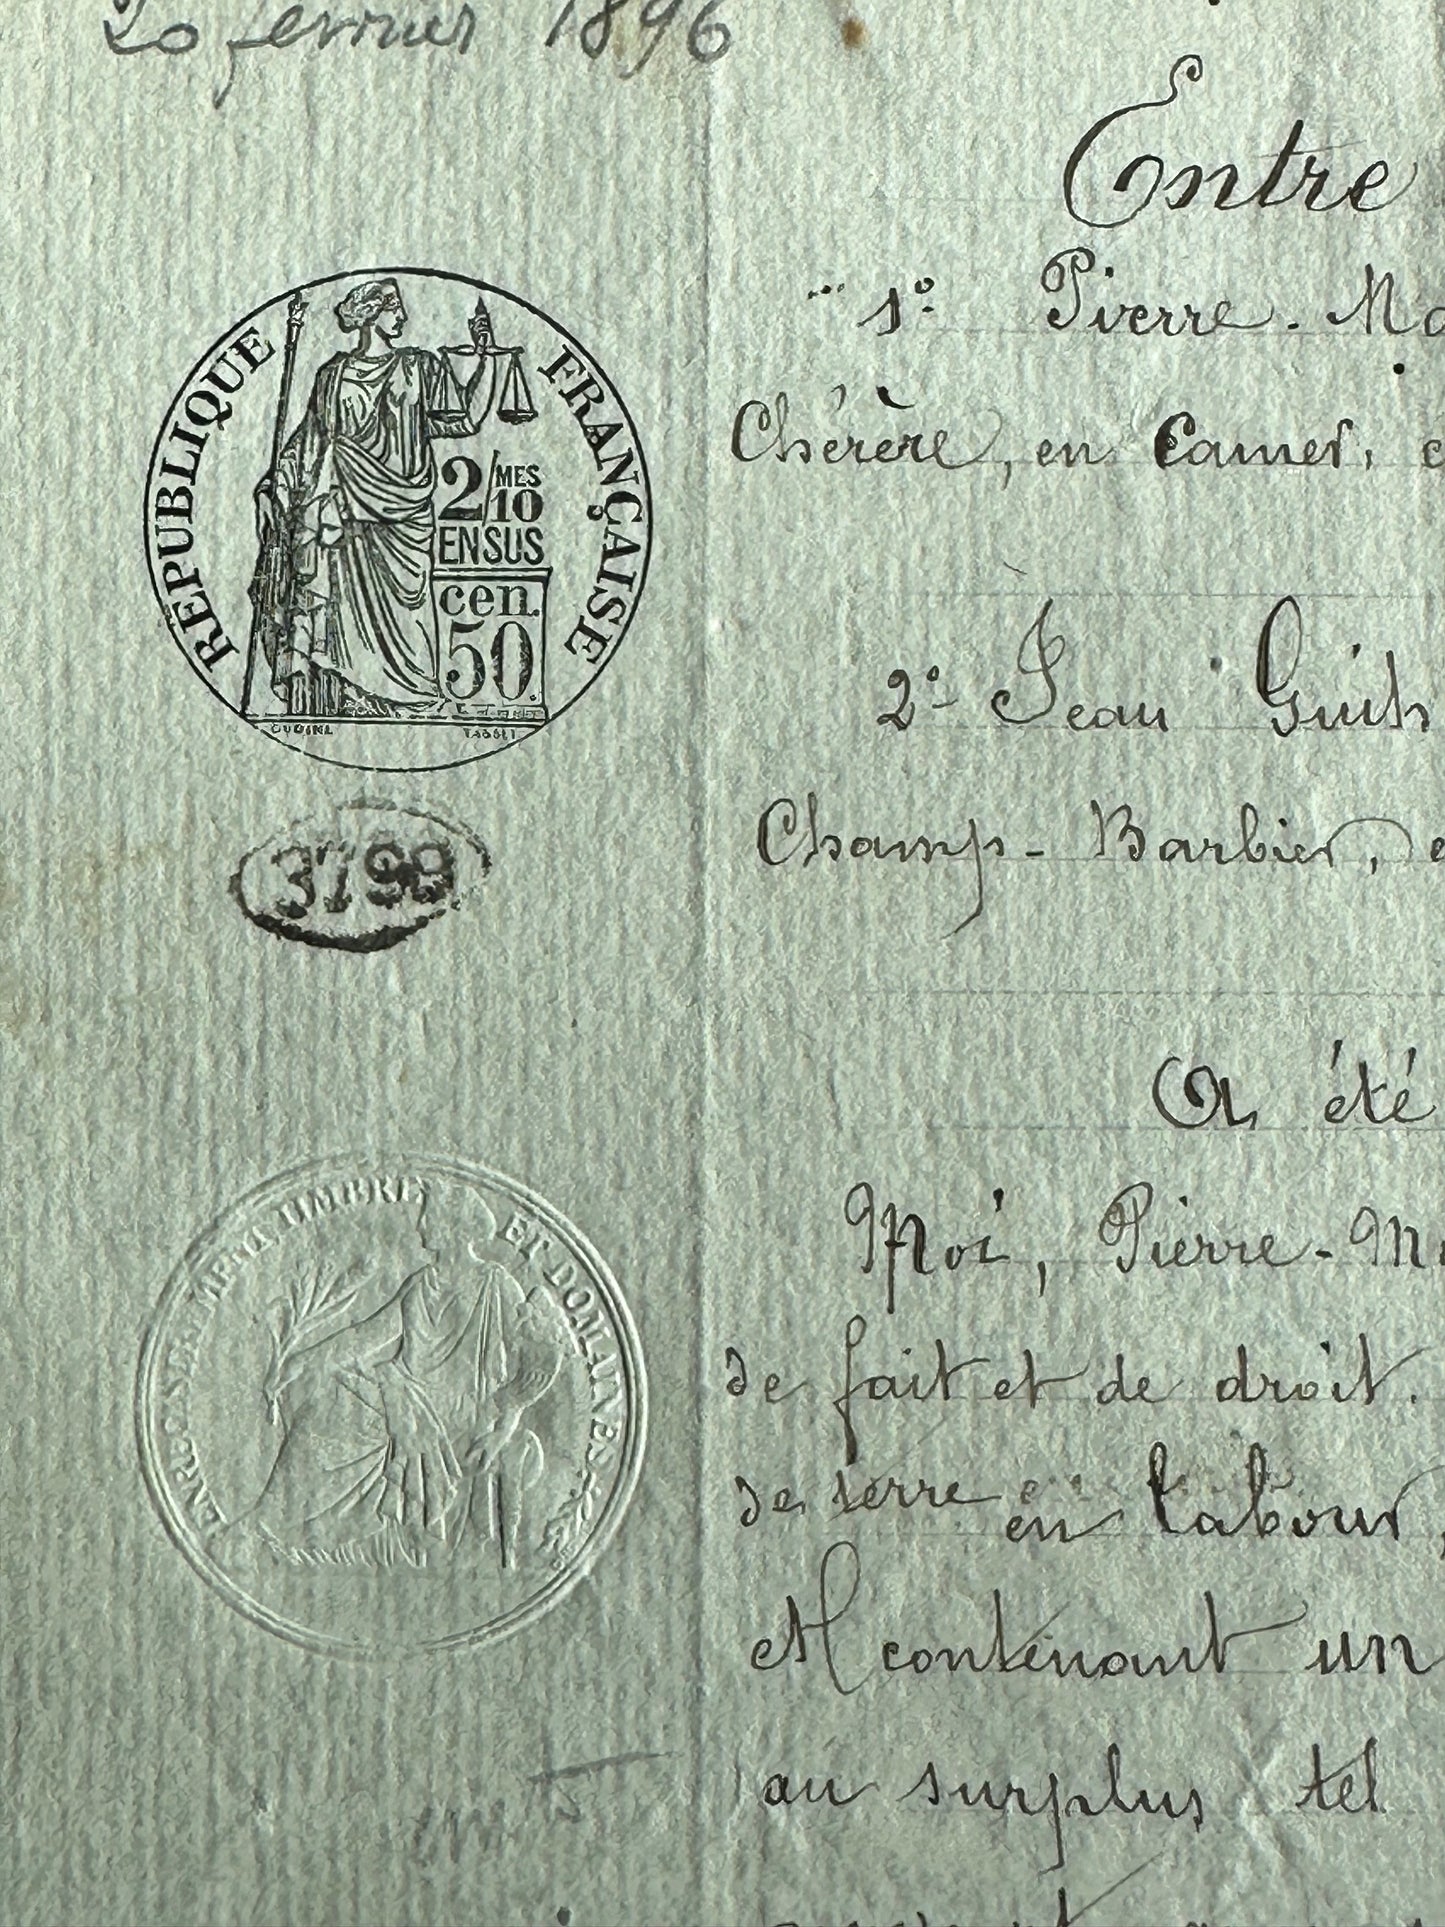 20 fevrier 1896
Entre
1º Pierre-Ma
Chérère, en Camer,
2º Jean Guils
Champ-Barbier,
A été
Moi, Pierre-M
de fait et de droit.
de terre en labour,
et contenant un
au surplus tel
RÉPUBLIQUE FRANÇAISE
2/10 MES
EN SUS
cen.
50.
OUDINÉ
3799
ENREGISTREMENT, TIMBRE ET DOMAINES